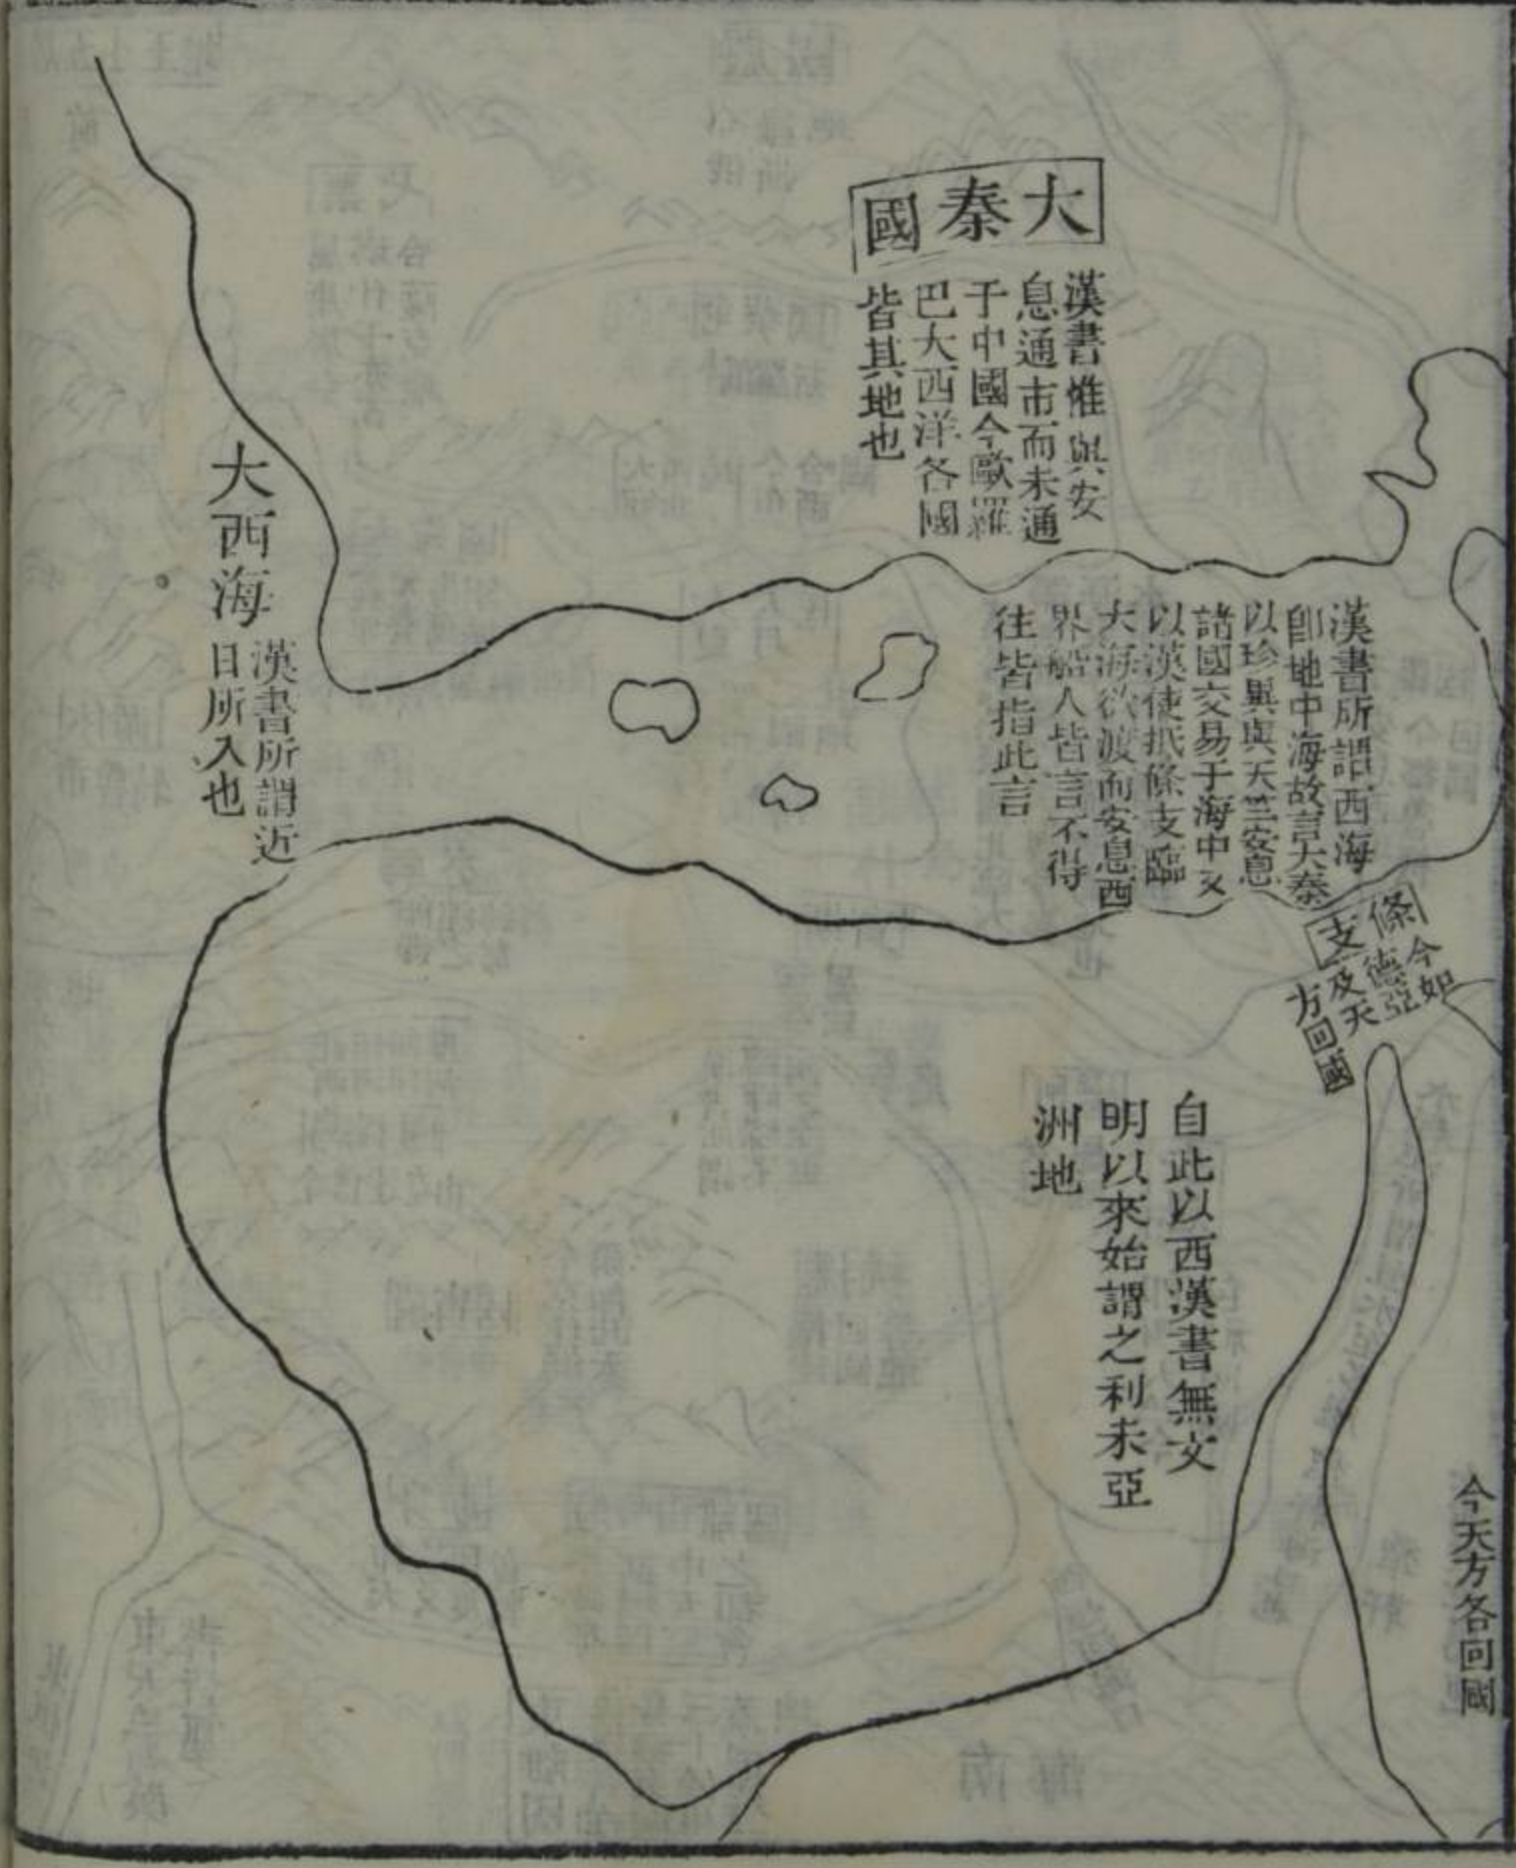 大秦國
漢書惟與安
息通市而未通
于中國今歐羅
巴大西洋各國
皆其地也
漢書所謂西海
卽地中海故言大秦
以珍異與天竺安息
諸國交易于海中又
以漢使抵條支臨
大海欲渡而安息西
界船人皆言不得
往皆指此言
條支
今如
德亞
及天
方回國
自此以西漢書無文
明以來始謂之利未亞
洲地
今天方各回國
大西海
漢書所謂近
日所入也